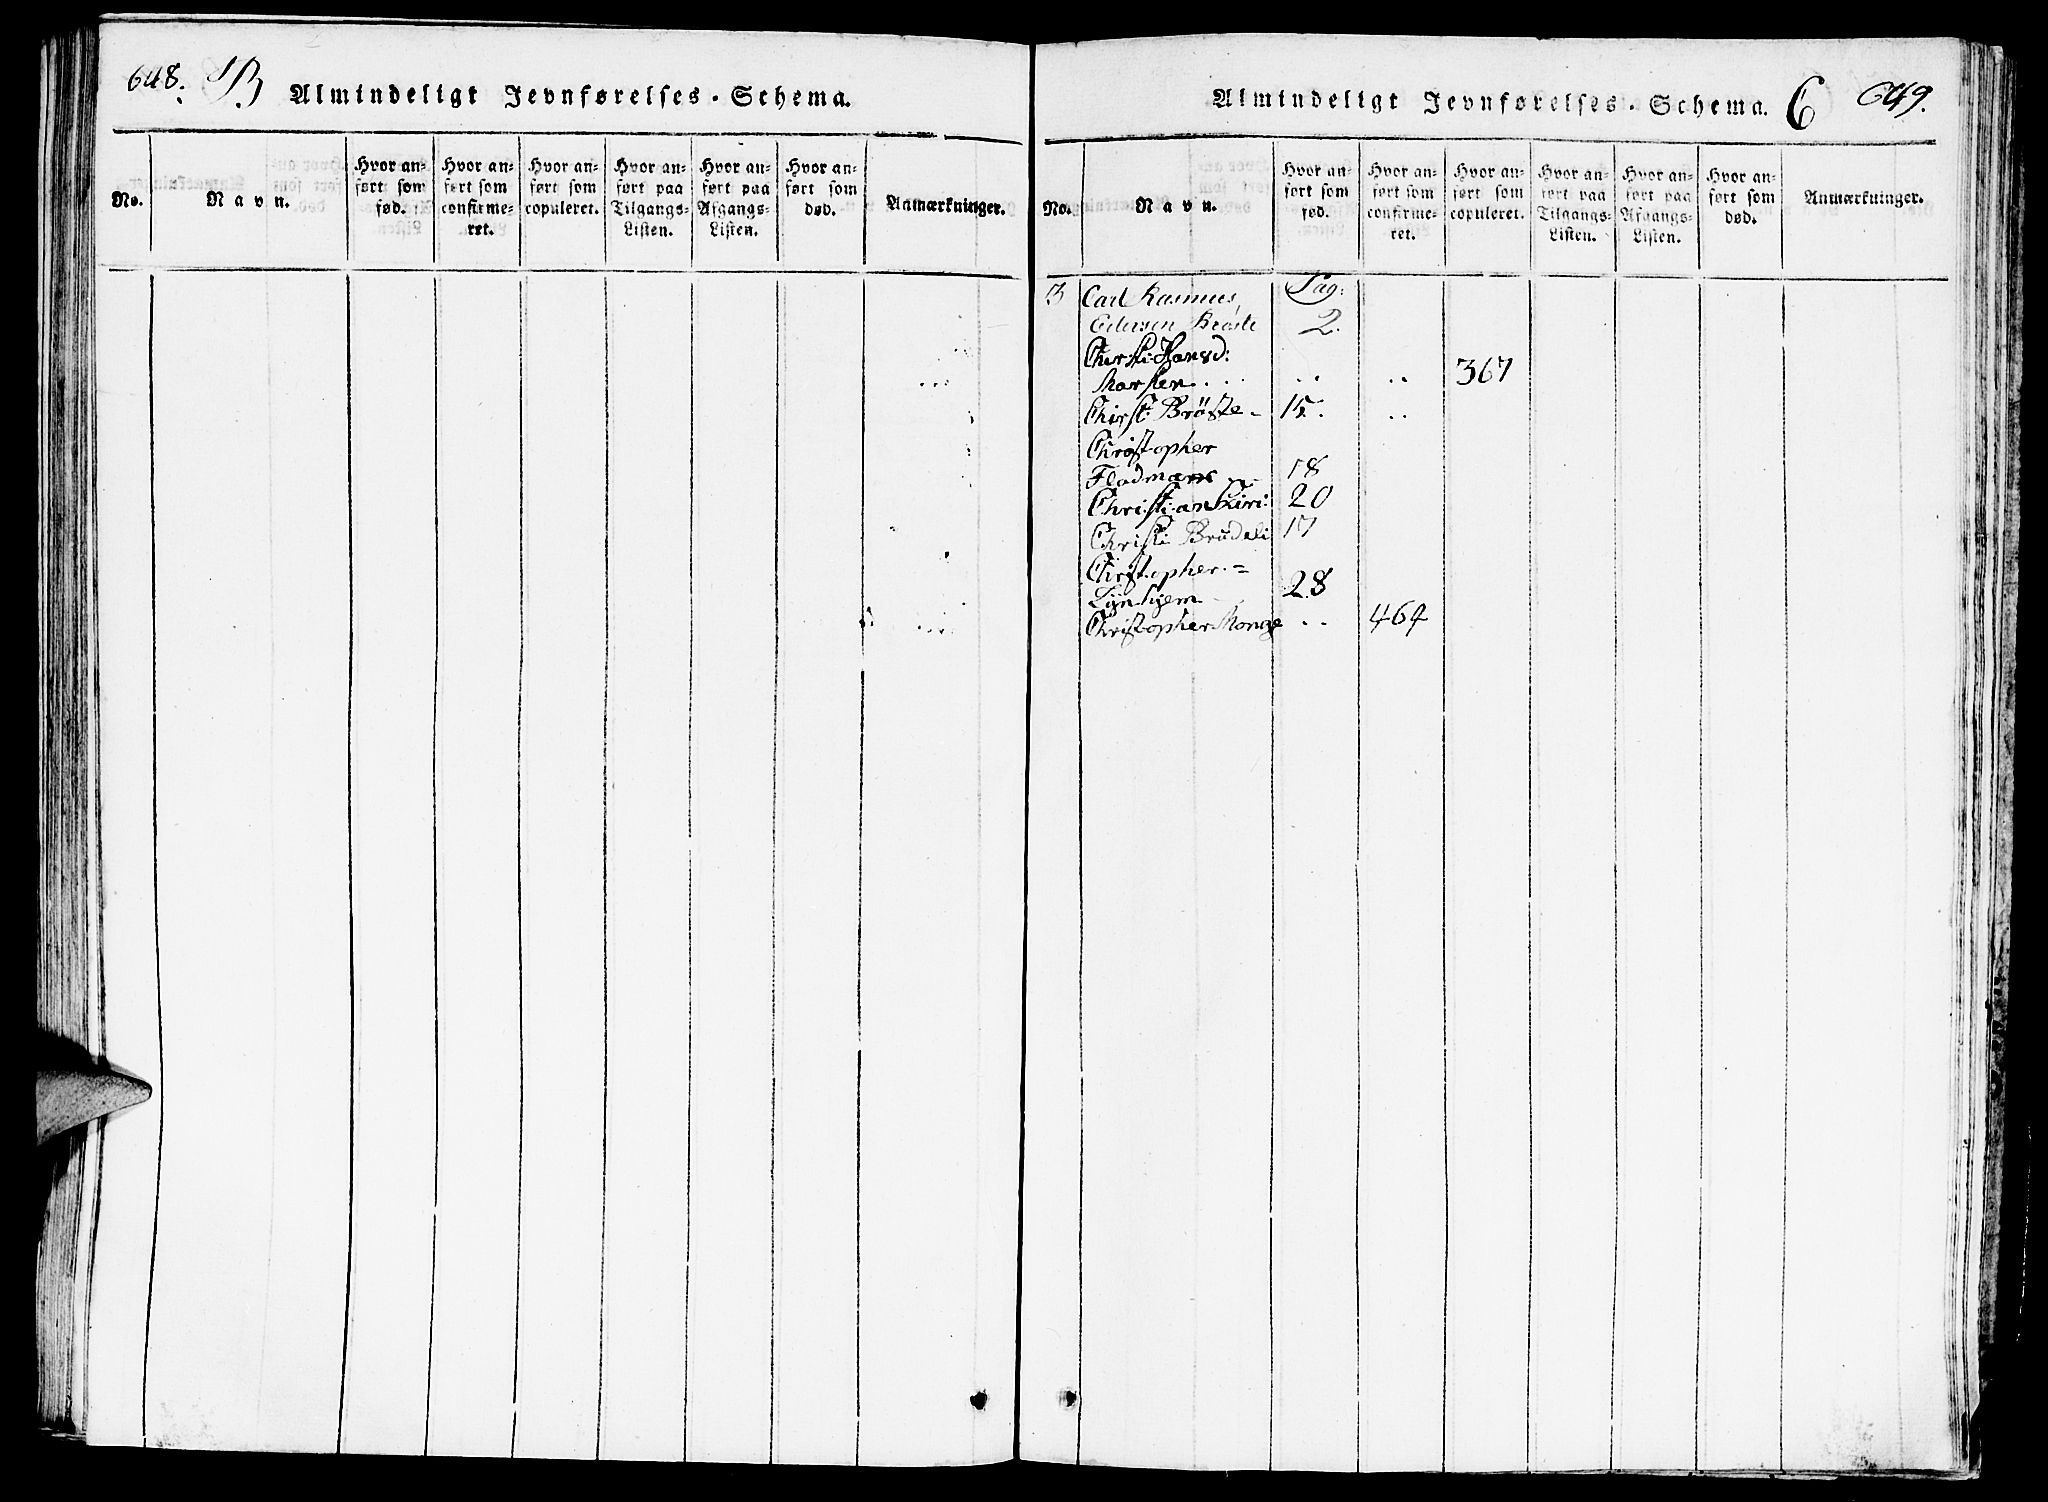 648. B Almindeligt Jevnførelses-Schema.
No.
Navn.
Hvor anført som fød.
Hvor anført som confirmeret.
Hvor anført som copuleret.
Hvor anført paa Tilgangs-Listen.
Hvor anført paa Afgangs-Listen.
Hvor anført som død.
Anmærkninger.
Almindeligt Jevnførelses-Schema. C 649.
No.
Navn.
Hvor anført som fød.
Hvor anført som confirmeret.
Hvor anført som copuleret.
Hvor anført paa Tilgangs-Listen.
Hvor anført paa Afgangs-Listen.
Hvor anført som død.
Anmærkninger.
3 Carl Rasmus Pag:
Edersen Brøste 2.
Christi: Hansd:
Marsten .... .. .. 367
Christ: Brøste - 15. ..
Christopher
Fladmark 18
Christian 20
Christi Brudeli 17
Christopher =
Lynhjem 28
Christopher Monge .. 464